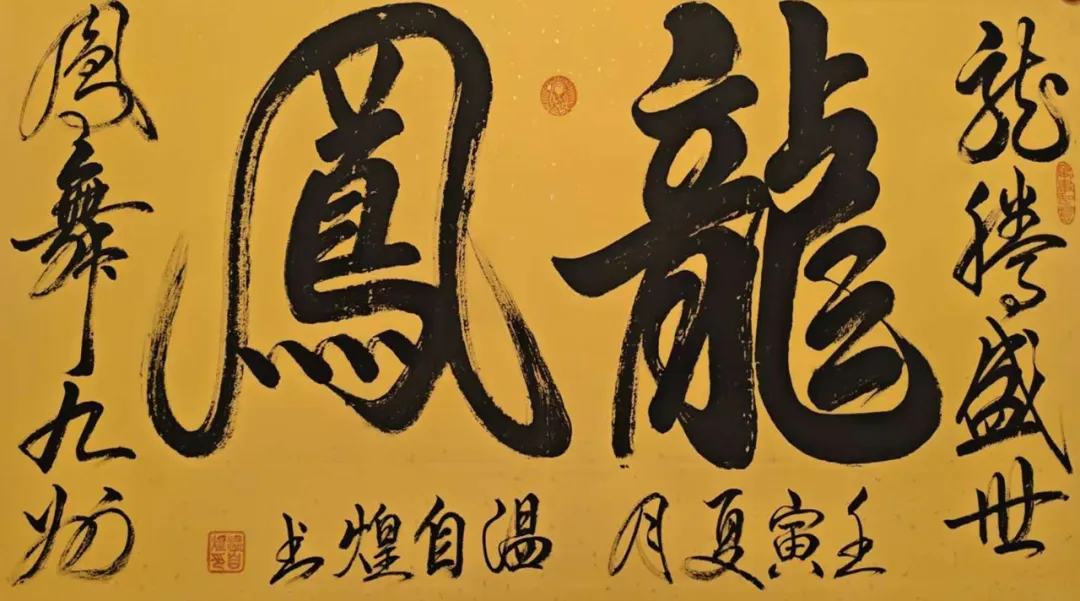 龍騰盛世
龍鳳
鳳舞九州
壬寅夏月溫自煌书